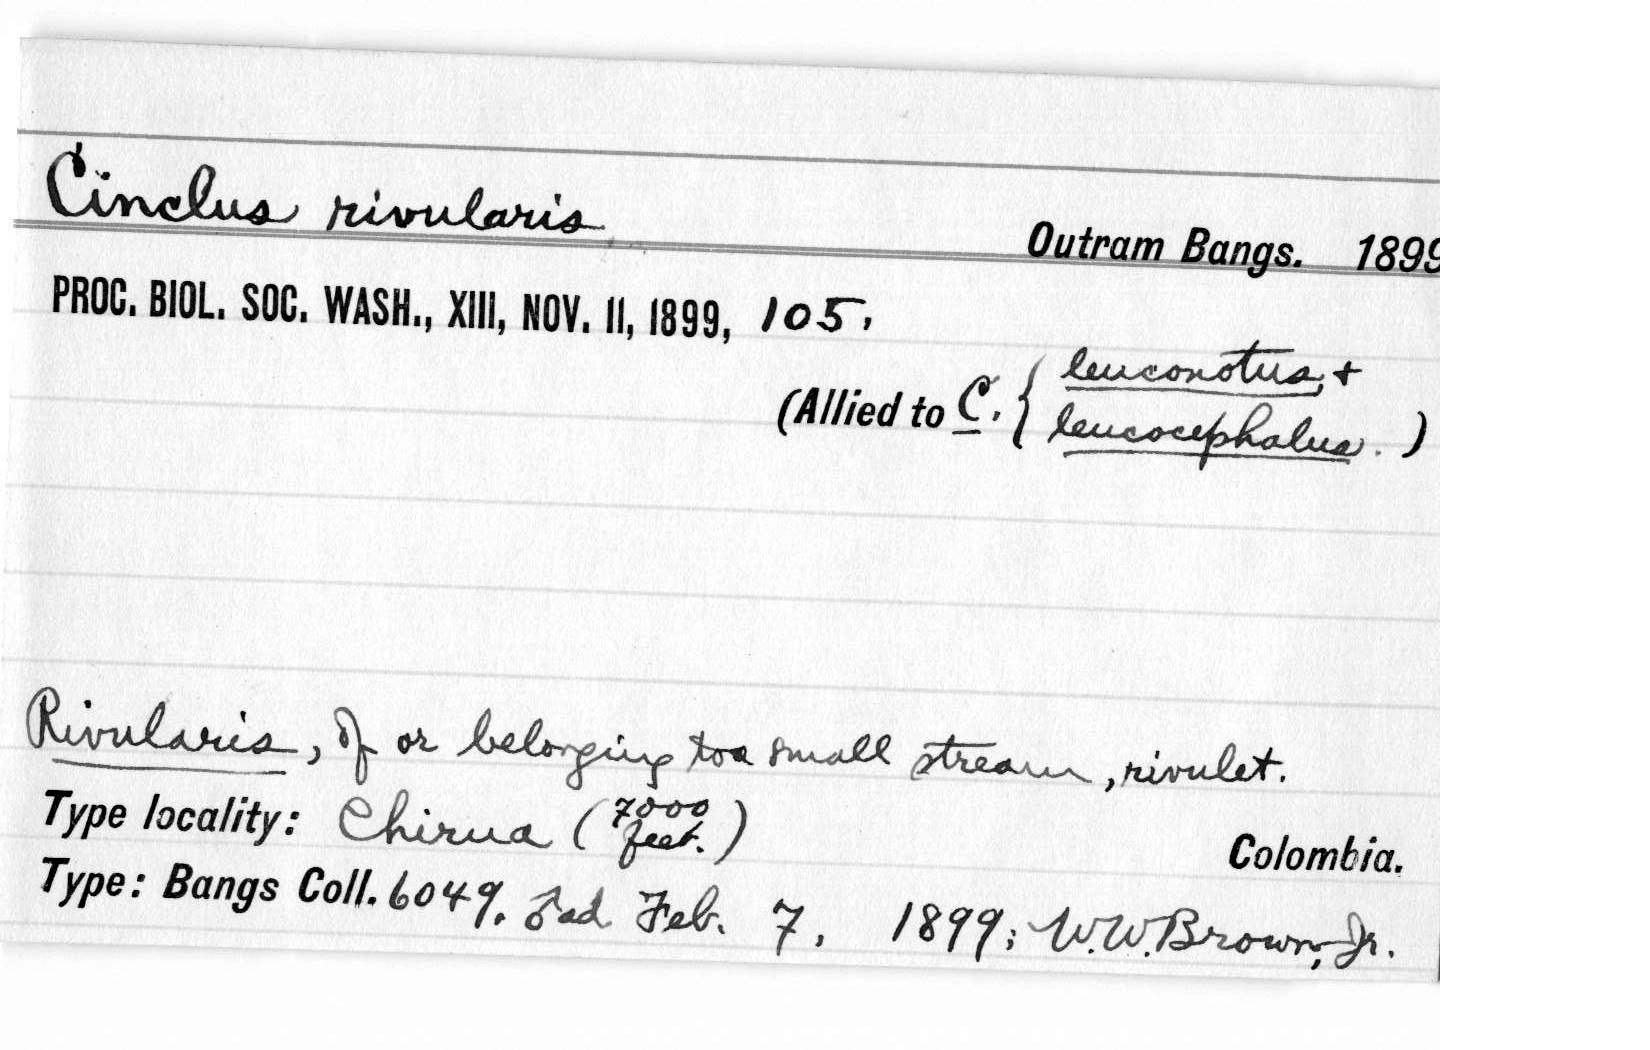 Cinclus rivularis
Outram Bangs. 1899
PROC. BIOL. SOC. WASH., XIII, NOV. 11, 1899, 105.
(Allied to C. { leuconotus, +
leucocephalus. )
Rivularis, of or belonging to a small stream, rivulet.
Type locality: Chirua (7000 feet.) Colombia.
Type: Bangs Coll. 6049. ad Feb. 7, 1899; W.W. Brown, Jr.